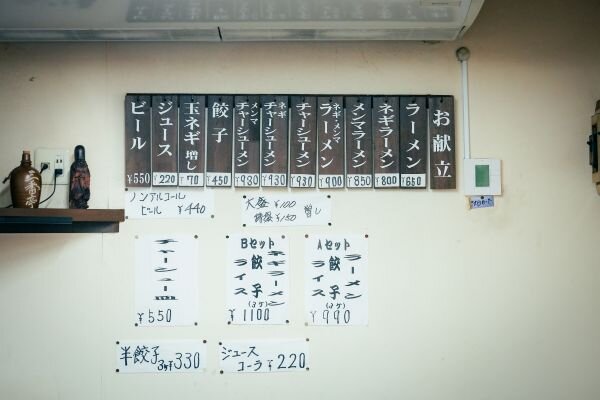 お献立
ラーメン
¥650
ネギラーメン
¥800
メンマラーメン
¥850
ネギ・メンマ
ラーメン
¥900
チャーシューメン
¥930
ネギ
チャーシューメン
¥930
メンマ
チャーシューメン
¥980
餃子
¥450
玉ネギ増し
¥70
ジュース
¥220
ビール
¥550
大盛 ¥100
特盛 ¥150 増し
ノンアルコール
ビール ¥440
Aセット
ラーメン
餃子(3ケ)
ライス
¥990
Bセット
ネギラーメン
餃子(3ケ)
ライス
¥1100
チャーシュー
¥550
半餃子 3ケ ¥330
ジュース
コーラ ¥220